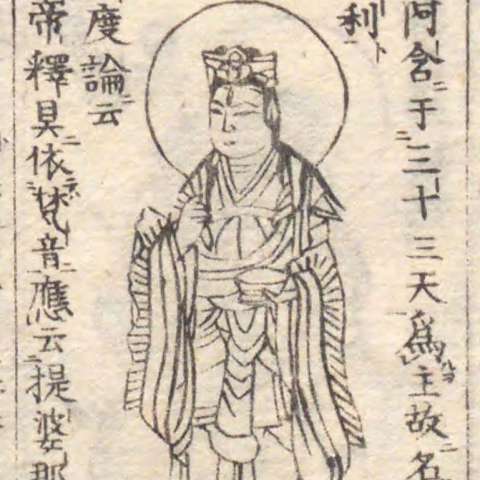 阿含ニ于三十三天爲主故名
利
度論云
帝釋具依梵音應云提婆那